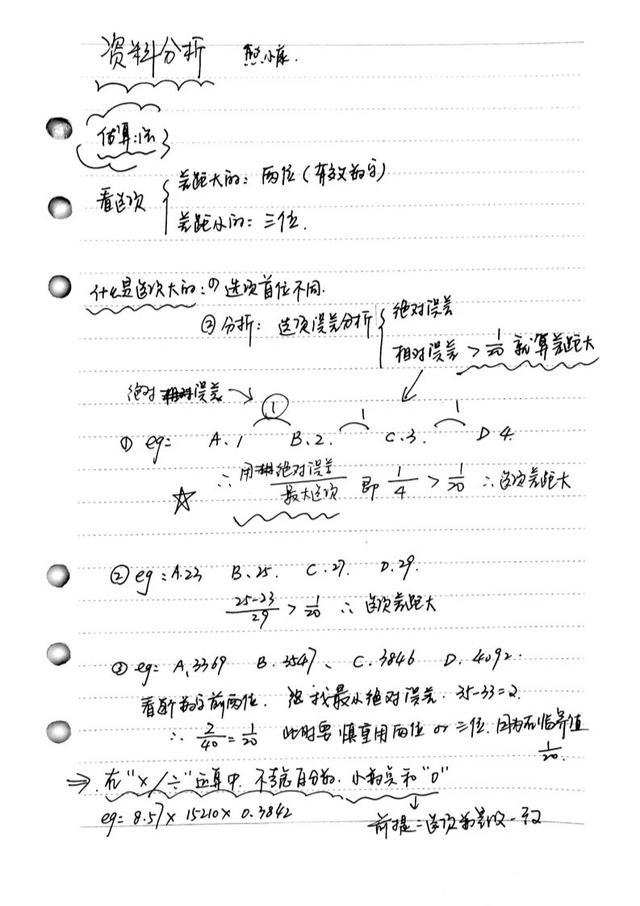 资料分析
估算法
看选项
差距大的: 两位 (有效数字)
差距小的: 三位.
什么是选项大的: ① 选项首位不同.
② 分析: 选项误差分析
绝对误差
相对误差 > 1/20 就算差距大
绝对 误差
① 1 1
① eg: A.1 B.2. C.3. D 4.
∴ 用 绝对误差/最大选项 即 1/4 > 1/20 ∴ 选项差距大
② eg: A.23 B.25. C.27. D.29.
25-23/29 > 1/20 ∴ 选项差距大
③ eg: A.3369 B.3547、 C.3846 D. 4092.
看 数字前两位. 找最小绝对误差. 35-33=2.
∴ 2/40 = 1/20 此时要慎重用两位 or 三位. 因为在临界值 1/20.
⇒ 在"×/÷"运算中, 不考虑百分数. 小数点和"0"
eg: 8.57 × 15210 × 0.3842
前提: 选项 一致